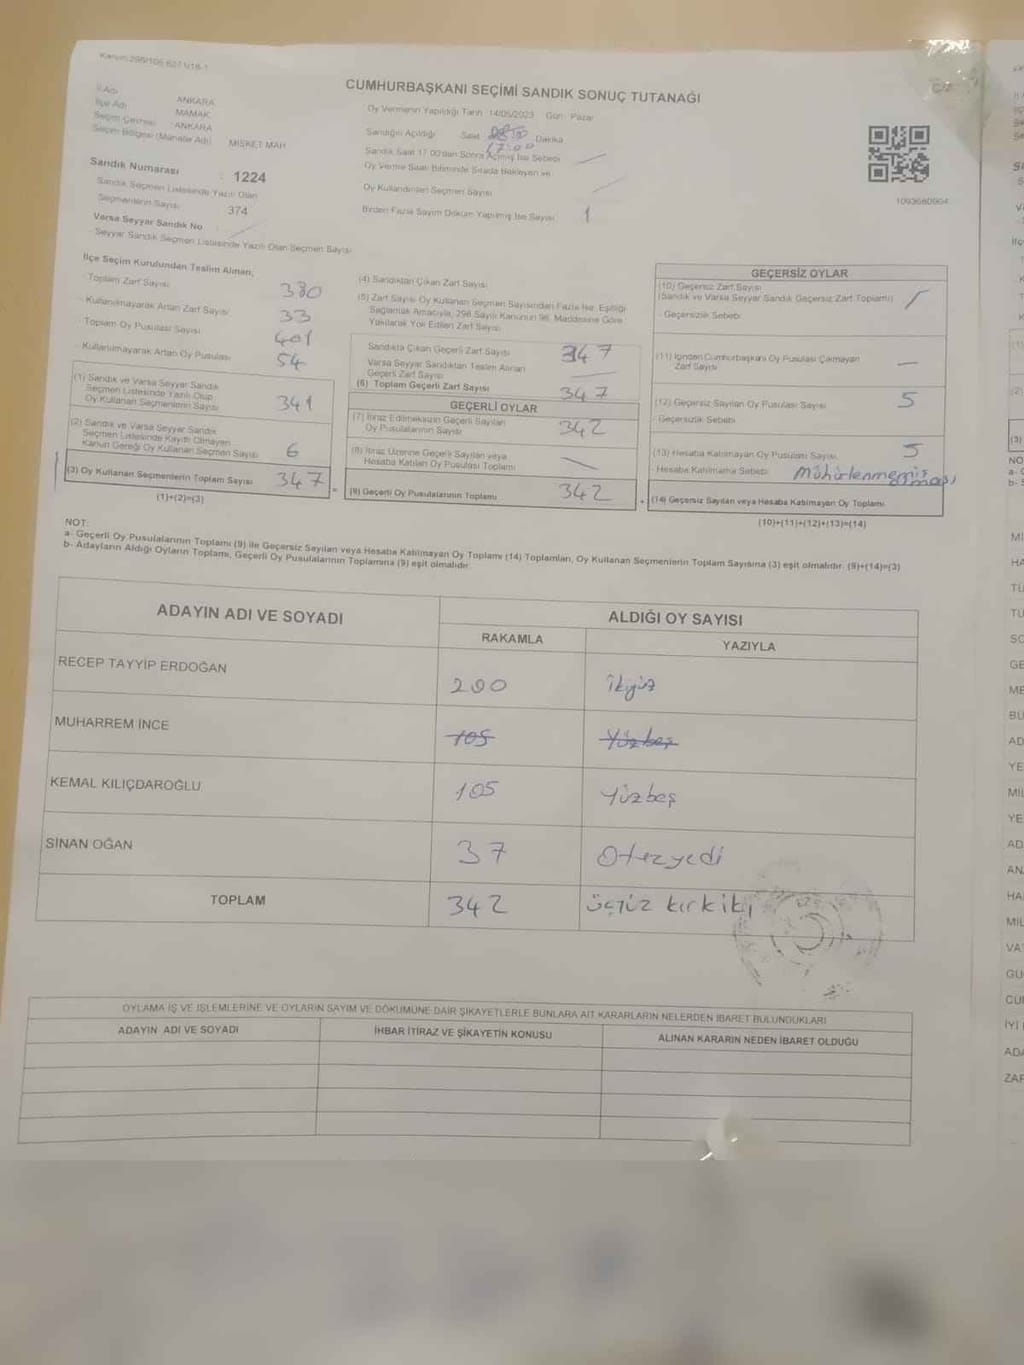 Kanun 298/105 627 U18-1
CUMHURBAŞKANI SEÇİMİ SANDIK SONUÇ TUTANAĞI
İl Adı ANKARA
İlçe Adı MAMAK
Seçim Çevresi : ANKARA
Seçim Bölgesi (Mahalle Adı) MISKET MAH
Sandık Numarası : 1224
Sandık Seçmen Listesinde Yazılı Olan
Seçmenlerin Sayısı 374
Varsa Seyyar Sandık No
- Seyyar Sandık Seçmen Listesinde Yazılı Olan Seçmen Sayısı
Oy Vermenin Yapıldığı Tarih : 14/05/2023 Gün : Pazar
Sandığın Açıldığı Saat 17:00 Dakika
Sandık Saat 17:00'dan Sonra Açılmış İse Sebebi
Oy Verme Saati Bitiminde Sırada Bekleyen ve
Oy Kullandırılan Seçmen Sayısı
Birden Fazla Sayım Döküm Yapılmış İse Sayısı 1
1093680904
İlçe Seçim Kurulundan Teslim Alınan;
- Toplam Zarf Sayısı 380
- Kullanılmayarak Artan Zarf Sayısı 33
- Toplam Oy Pusulası Sayısı 401
- Kullanılmayarak Artan Oy Pusulası 54
(1) Sandık ve Varsa Seyyar Sandık
Seçmen Listesinde Yazılı Olup
Oy Kullanan Seçmenlerin Sayısı 341
(2) Sandık ve Varsa Seyyar Sandık
Seçmen Listesinde Kayıtlı Olmayan
Kanun Gereği Oy Kullanan Seçmen Sayısı 6
(3) Oy Kullanan Seçmenlerin Toplam Sayısı 347
(1)+(2)=(3)
(4) Sandıktan Çıkan Zarf Sayısı
(5) Zarf Sayısı Oy Kullanan Seçmen Sayısından Fazla İse, Eşitliği
Sağlamak Amacıyla, 298 Sayılı Kanunun 98. Maddesine Göre
Yakılarak Yok Edilen Zarf Sayısı
Sandıkta Çıkan Geçerli Zarf Sayısı 347
Varsa Seyyar Sandıktan Teslim Alınan
Geçerli Zarf Sayısı
(6) Toplam Geçerli Zarf Sayısı 347
GEÇERLİ OYLAR
(7) İtiraz Edilmeksizin Geçerli Sayılan
Oy Pusulalarının Sayısı 342
(8) İtiraz Üzerine Geçerli Sayılan veya
Hesaba Katılan Oy Pusulası Toplamı
(9) Geçerli Oy Pusulalarının Toplamı 342
GEÇERSİZ OYLAR
(10) Geçersiz Zarf Sayısı
(Sandık ve Varsa Seyyar Sandık Geçersiz Zarf Toplamı)
- Geçersizlik Sebebi
(11) İçinden Cumhurbaşkanı Oy Pusulası Çıkmayan
Zarf Sayısı —
(12) Geçersiz Sayılan Oy Pusulası Sayısı 5
- Geçersizlik Sebebi
(13) Hesaba Katılmayan Oy Pusulası Sayısı 5
- Hesaba Katılmama Sebebi
(14) Geçersiz Sayılan veya Hesaba Katılmayan Oy Toplamı
(10)+(11)+(12)+(13)=(14)
NOT:
a- Geçerli Oy Pusulalarının Toplamı (9) ile Geçersiz Sayılan veya Hesaba Katılmayan Oy Toplamı (14) Toplamları, Oy Kullanan Seçmenlerin Toplam Sayısına (3) eşit olmalıdır. (9)+(14)=(3)
b- Adayların Aldığı Oyların Toplamı, Geçerli Oy Pusulalarının Toplamına (9) eşit olmalıdır.
ADAYIN ADI VE SOYADI ALDIĞI OY SAYISI
RAKAMLA YAZIYLA
RECEP TAYYİP ERDOĞAN 200 ikiyüz
MUHARREM İNCE 105 Yüzbeş
KEMAL KILIÇDAROĞLU 105 Yüzbeş
SİNAN OĞAN 37 Otuzyedi
TOPLAM 342 üçyüz kırkiki
OYLAMA İŞ VE İŞLEMLERİNE VE OYLARIN SAYIM VE DÖKÜMÜNE DAİR ŞİKAYETLERLE BUNLARA AİT KARARLARIN NELERDEN İBARET BULUNDUKLARI
ADAYIN ADI VE SOYADI İHBAR İTİRAZ VE ŞİKAYETİN KONUSU ALINAN KARARIN NEDEN İBARET OLDUĞU